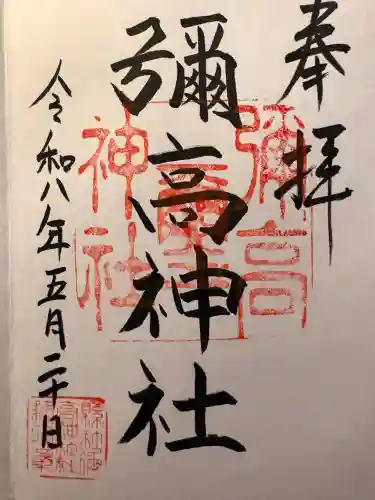 奉拝
彌高神社
令和八年五月二十日
彌高
神社